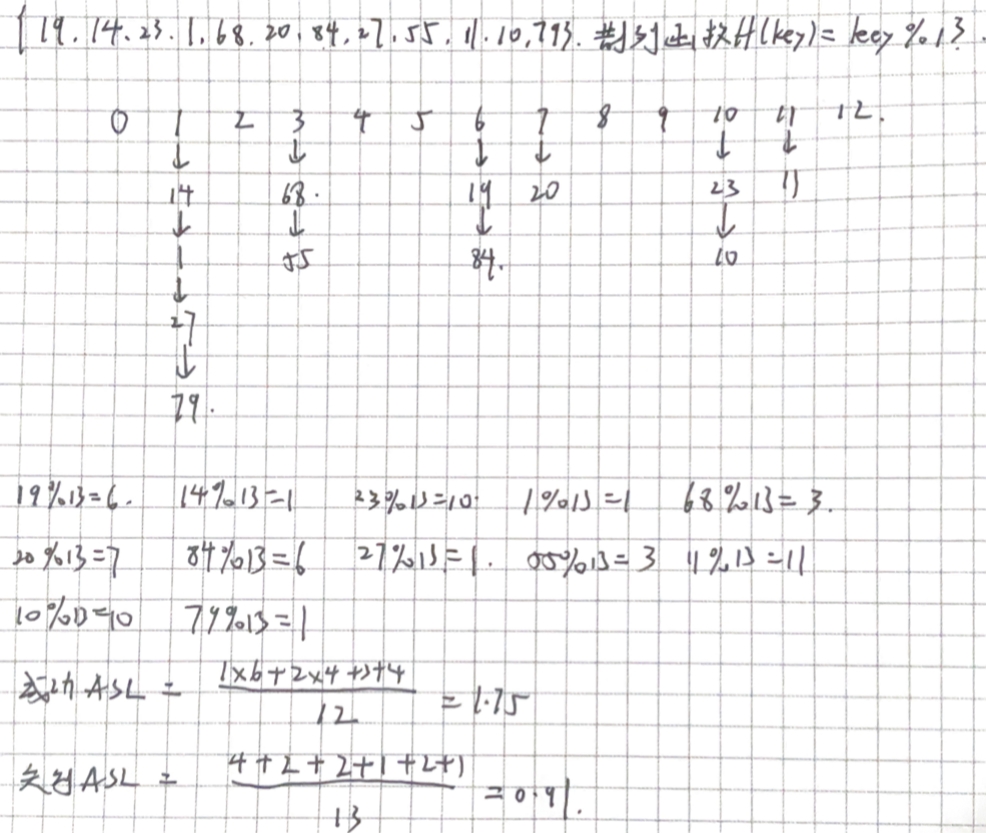 {19.14.23.1.68.20.84.27.55.11.10.79}. 散列函数H(key)= key%13.
0 1 2 3 4 5 6 7 8 9 10 11 12.
↓ ↓ ↓ ↓ ↓ ↓
14 68. 19 20 23 11
↓ ↓ ↓ ↓
1 55 84. 10
↓
27
↓
79.
19%13=6. 14%13=1 23%13=10. 1%13=1 68%13=3.
20%13=7 84%13=6 27%13=1. 55%13=3 11%13=11
10%13=10 79%13=1
成功ASL = (1×6+2×4+3+4)/12 = 1.75
失败ASL = (4+2+2+1+2+1)/13 = 0.91.